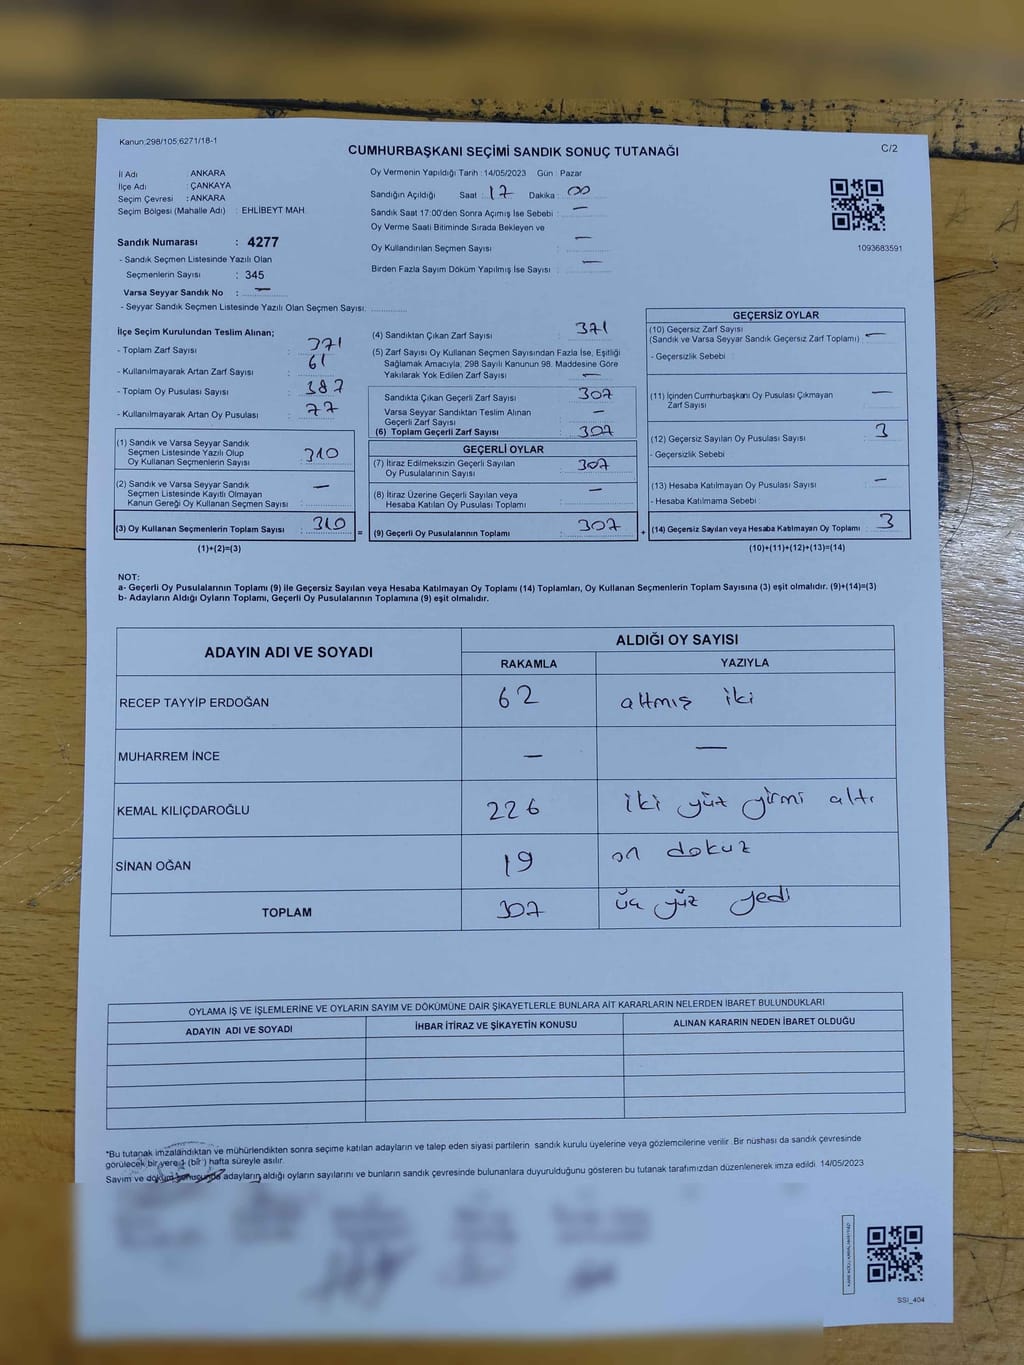 Kanun;298/105,6271/18-1
CUMHURBAŞKANI SEÇİMİ SANDIK SONUÇ TUTANAĞI
C/2
İl Adı : ANKARA
İlçe Adı : ÇANKAYA
Seçim Çevresi : ANKARA
Seçim Bölgesi (Mahalle Adı) : EHLİBEYT MAH.
Sandık Numarası : 4277
- Sandık Seçmen Listesinde Yazılı Olan
Seçmenlerin Sayısı : 345
Varsa Seyyar Sandık No : —
- Seyyar Sandık Seçmen Listesinde Yazılı Olan Seçmen Sayısı:
Oy Vermenin Yapıldığı Tarih : 14/05/2023 Gün : Pazar
Sandığın Açıldığı Saat : 17 Dakika : 00
Sandık Saat 17:00'den Sonra Açımış İse Sebebi : —
Oy Verme Saati Bitiminde Sırada Bekleyen ve
Oy Kullandırılan Seçmen Sayısı : —
Birden Fazla Sayım Döküm Yapılmış İse Sayısı : —
1093683591
İlçe Seçim Kurulundan Teslim Alınan;
- Toplam Zarf Sayısı : 371
- Kullanılmayarak Artan Zarf Sayısı : 61
- Toplam Oy Pusulası Sayısı : 387
- Kullanılmayarak Artan Oy Pusulası : 77
(1) Sandık ve Varsa Seyyar Sandık
Seçmen Listesinde Yazılı Olup
Oy Kullanan Seçmenlerin Sayısı : 310
(2) Sandık ve Varsa Seyyar Sandık
Seçmen Listesinde Kayıtlı Olmayan
Kanun Gereği Oy Kullanan Seçmen Sayısı : —
(3) Oy Kullanan Seçmenlerin Toplam Sayısı : 310
(1)+(2)=(3)
=
(4) Sandıktan Çıkan Zarf Sayısı : 371
(5) Zarf Sayısı Oy Kullanan Seçmen Sayısından Fazla İse, Eşitliği
Sağlamak Amacıyla; 298 Sayılı Kanunun 98. Maddesine Göre
Yakılarak Yok Edilen Zarf Sayısı : —
Sandıkta Çıkan Geçerli Zarf Sayısı : 307
Varsa Seyyar Sandıktan Teslim Alınan
Geçerli Zarf Sayısı : —
(6) Toplam Geçerli Zarf Sayısı : 307
GEÇERLİ OYLAR
(7) İtiraz Edilmeksizin Geçerli Sayılan
Oy Pusulalarının Sayısı : 307
(8) İtiraz Üzerine Geçerli Sayılan veya
Hesaba Katılan Oy Pusulası Toplamı : —
(9) Geçerli Oy Pusulalarının Toplamı : 307
+
GEÇERSİZ OYLAR
(10) Geçersiz Zarf Sayısı
(Sandık ve Varsa Seyyar Sandık Geçersiz Zarf Toplamı) : —
- Geçersizlik Sebebi :
(11) İçinden Cumhurbaşkanı Oy Pusulası Çıkmayan
Zarf Sayısı : —
(12) Geçersiz Sayılan Oy Pusulası Sayısı : 3
- Geçersizlik Sebebi
(13) Hesaba Katılmayan Oy Pusulası Sayısı : —
- Hesaba Katılmama Sebebi :
(14) Geçersiz Sayılan veya Hesaba Katılmayan Oy Toplamı : 3
(10)+(11)+(12)+(13)=(14)
NOT:
a- Geçerli Oy Pusulalarının Toplamı (9) ile Geçersiz Sayılan veya Hesaba Katılmayan Oy Toplamı (14) Toplamları, Oy Kullanan Seçmenlerin Toplam Sayısına (3) eşit olmalıdır. (9)+(14)=(3)
b- Adayların Aldığı Oyların Toplamı, Geçerli Oy Pusulalarının Toplamına (9) eşit olmalıdır.
ADAYIN ADI VE SOYADI
ALDIĞI OY SAYISI
RAKAMLA YAZIYLA
RECEP TAYYİP ERDOĞAN 62 altmış iki
MUHARREM İNCE — —
KEMAL KILIÇDAROĞLU 226 iki yüz yirmi altı
SİNAN OĞAN 19 on dokuz
TOPLAM 307 üç yüz yedi
OYLAMA İŞ VE İŞLEMLERİNE VE OYLARIN SAYIM VE DÖKÜMÜNE DAİR ŞİKAYETLERLE BUNLARA AİT KARARLARIN NELERDEN İBARET BULUNDUKLARI
ADAYIN ADI VE SOYADI İHBAR İTİRAZ VE ŞİKAYETİN KONUSU ALINAN KARARIN NEDEN İBARET OLDUĞU
*Bu tutanak imzalandıktan ve mühürlendikten sonra seçime katılan adayların ve talep eden siyasi partilerin sandık kurulu üyelerine veya gözlemcilerine verilir. Bir nüshası da sandık çevresinde
görülecek bir yere 1 (bir) hafta süreyle asılır.
Sayım ve döküm sonucunda adayların aldığı oyların sayılarını ve bunların sandık çevresinde bulunanlara duyurulduğunu gösteren bu tutanak tarafımızdan düzenlenerek imza edildi. 14/05/2023
SSI_404